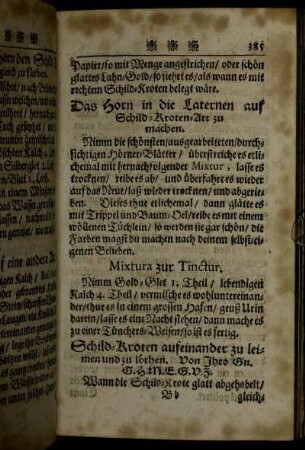 385
Papier/so mit Menge angestrichen/ oder schön
glattes Lahn/Gold/so siehet es/als wann es mit
rechtem Schild-Kroten belegt wäre.
Das Horn in die Laternen auf
Schild-Kroten-Art zu
machen.
Nimm die schönsten/ausgearbeiteten/durch-
sichtigen Hörner-Blätter / überstreiche es etli-
chemal mit hernachfolgender Mixtur, lasse es
trocknen/ reibes ab/ und überfahr es wieder
auf das Neue/laß wieder trocknen/und abgerie-
ben. Dieses thue etlichemal/ dann glätte es
mit Trippel und Baum-Oel/reibe es mit einem
wöllenen Tüchlein/ so werden sie gar schön/ die
Farben magst du machen nach deinem selbst/ei-
genen Belieben.
Mixtura zur Tinctur.
Nimm Gold-Glet 1. Theil / lebendigen
Kalch 4. Theil / vermische es wohluntereinan-
der/thue es in einem grossen Hafen/ geuß Urin
darein/lasse es eine Nacht stehen/ dann mache es
zu einer Tünchers-Weisen/so ist es fertig.
Schild-Kroten aufeinander zu lei-
men und zu löthen. Von Ihro Gn.
C. H. M. E. G. V. Z.
Wann die Schild-Krote glatt abgehobelt/
Bb
gleich-